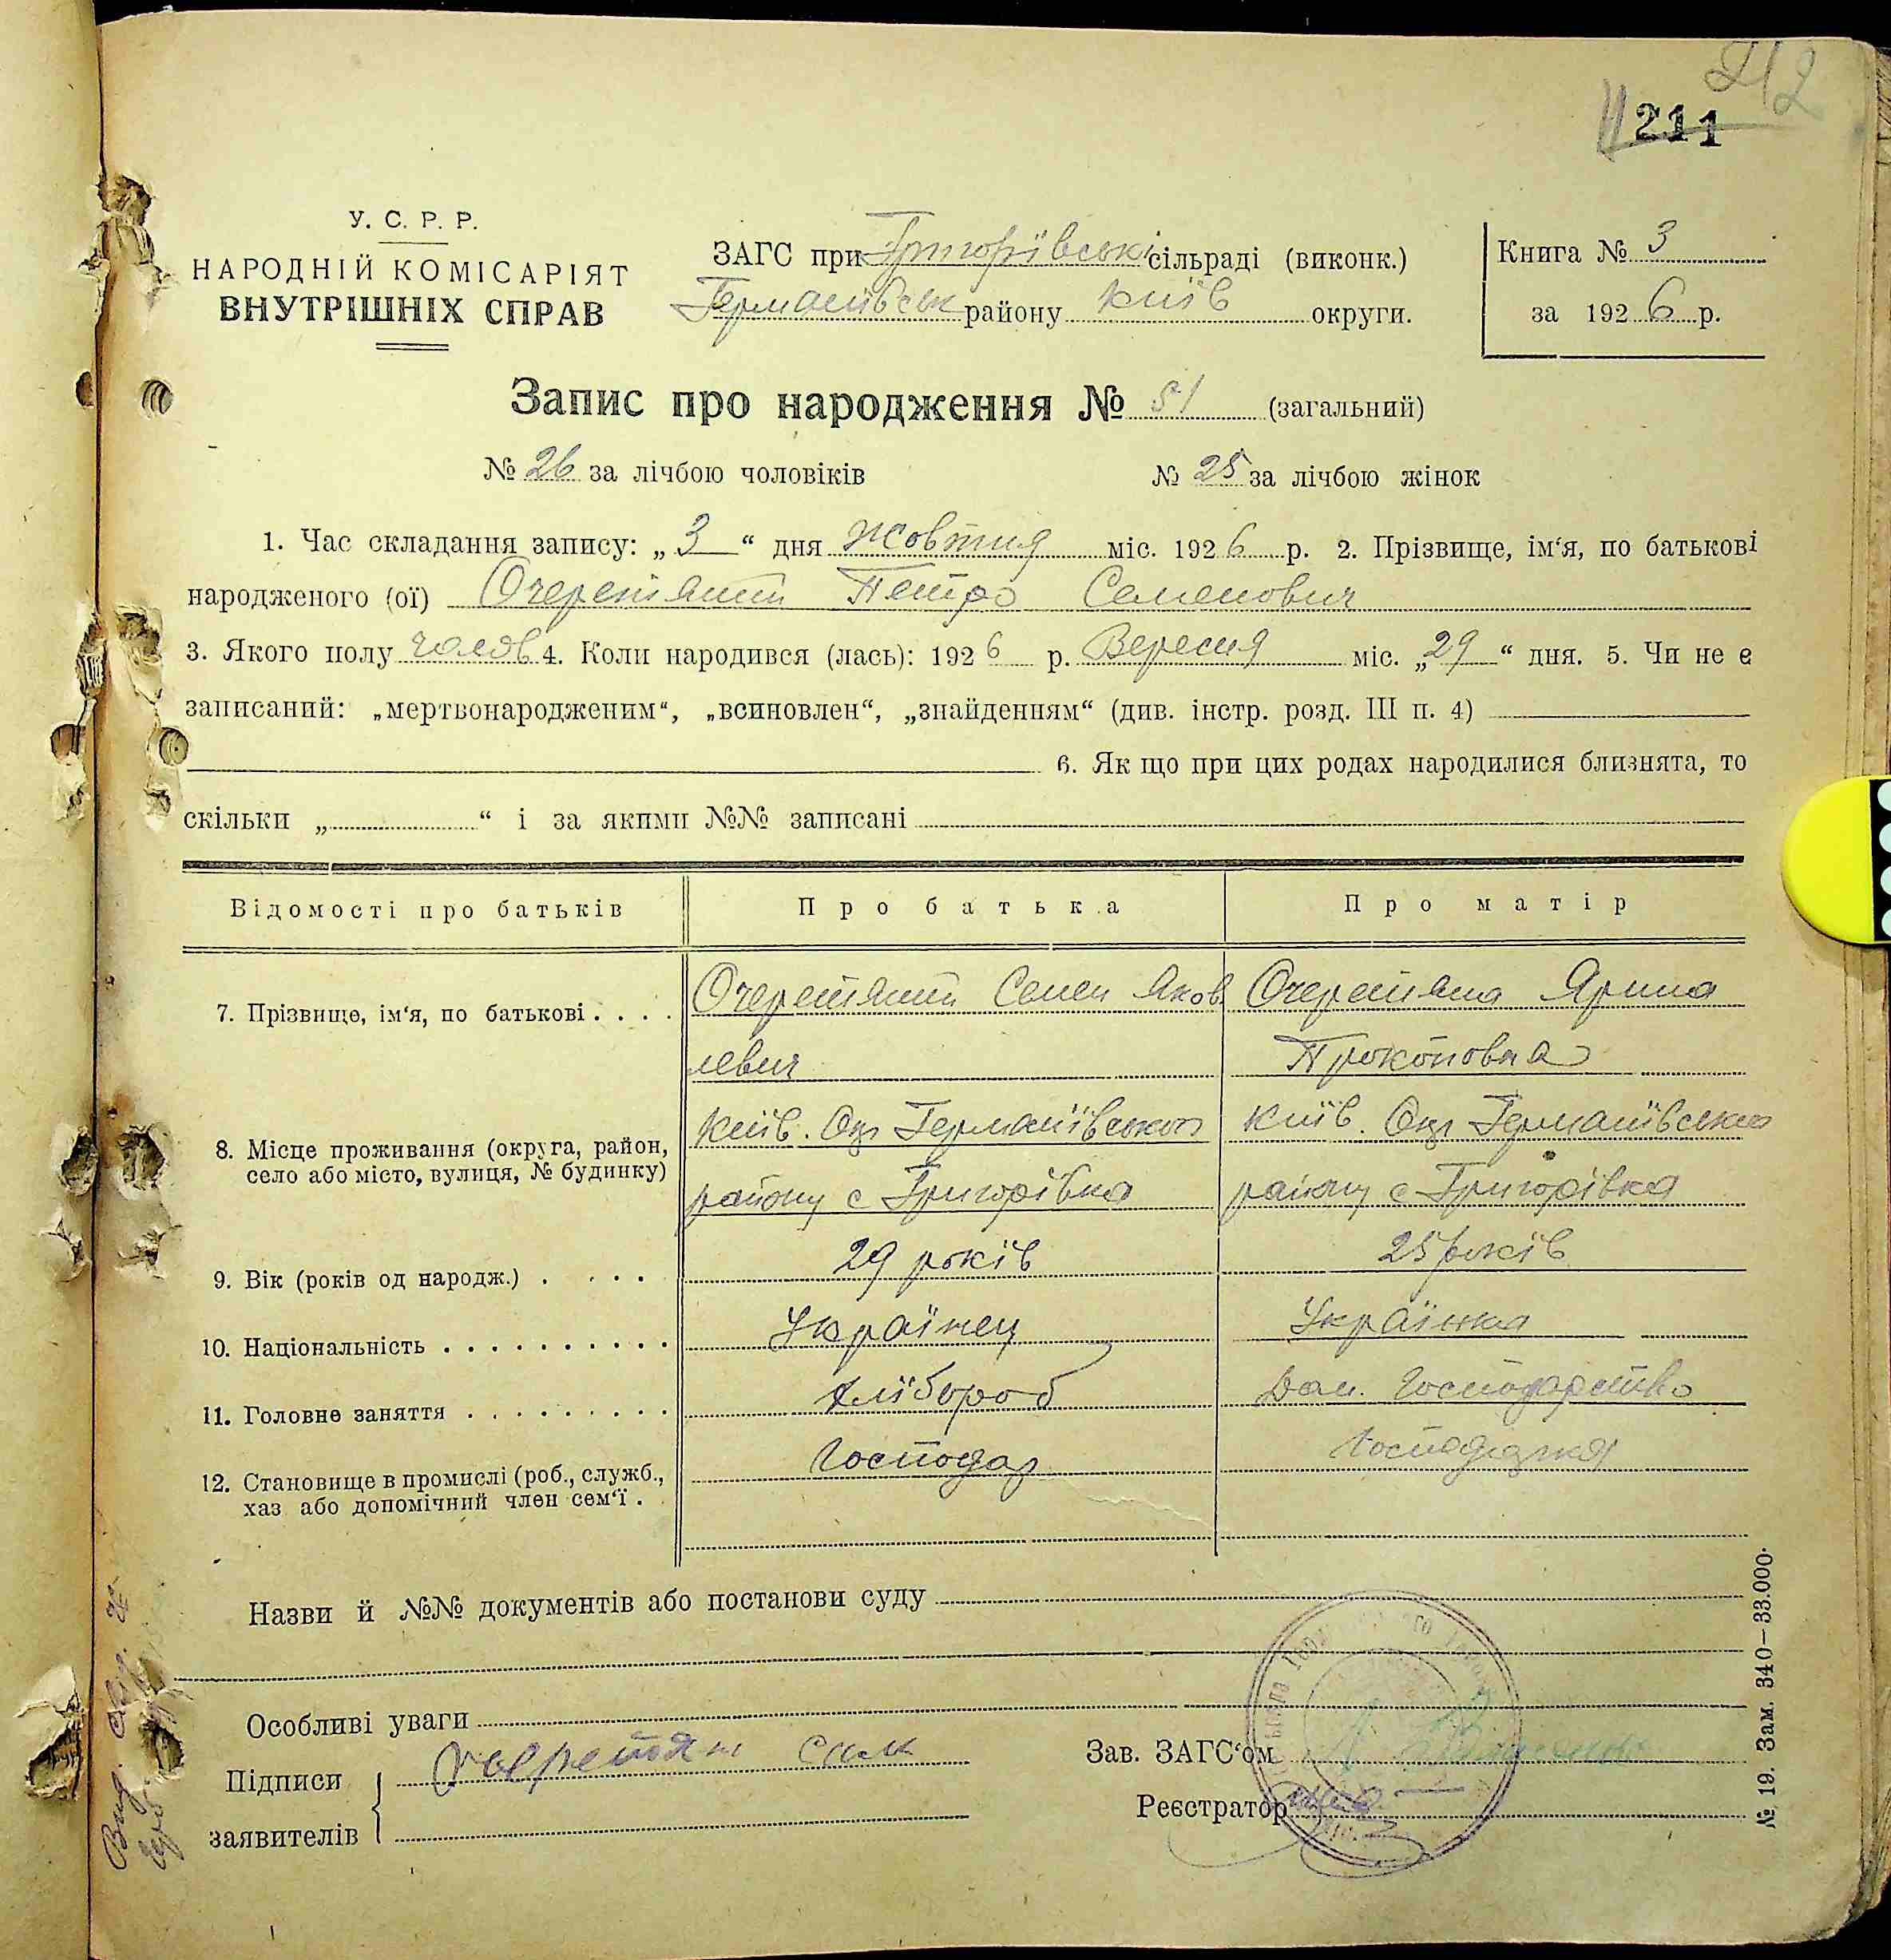 212
211
У. С. Р. Р.
НАРОДНІЙ КОМІСАРІЯТ
ВНУТРІШНІХ СПРАВ
ЗАГС при Григорівські сільраді (виконк.)
Германівськ району Київ округи.
Книга № 3
за 1926 р.
Запис про народження № 51 (загальний)
№ 26 за лічбою чоловіків № 25 за лічбою жінок
1. Час складання запису: „3“ дня Жовтня міс. 1926 р. 2. Прізвище, ім‘я, по батькові
народженого (ої) Очеретяний Петро Семенович
3. Якого полу чолов 4. Коли народився (лась): 1926 р. Вересня міс. „29“ дня. 5. Чи не є
записаний: „мертвонародженим“, „всиновлен“, „знайденням“ (див. інстр. розд. III п. 4)
6. Як що при цих родах народилися близнята, то
скільки „ “ і за якими №№ записані
Відомості про батьків Про батька Про матір
7. Прізвище, ім‘я, по батькові . . . . Очеретяний Семен Яков Очеретяна Ярина
левич Прокоповна
8. Місце проживання (округа, район, село або місто, вулиця, № будинку)
Київ. Окр Германівського Київ. Окр Германівського
району с Григорівка району с Григорівка
9. Вік (років од народж.) . . . . 29 років 25 років
10. Національність . . . . . . . . . . Українец Українка
11. Головне заняття . . . . . . . . . Хлібороб Дом. Господарство
12. Становище в промислі (роб., служб., хаз або допомічний член сем‘ї . Господар Господарка
Назви й №№ документів або постанови суду
Особливі уваги
Підписи
заявителів
Зав. ЗАГС‘ом
Реєстратор
№ 19. Зам. 340—33.000.